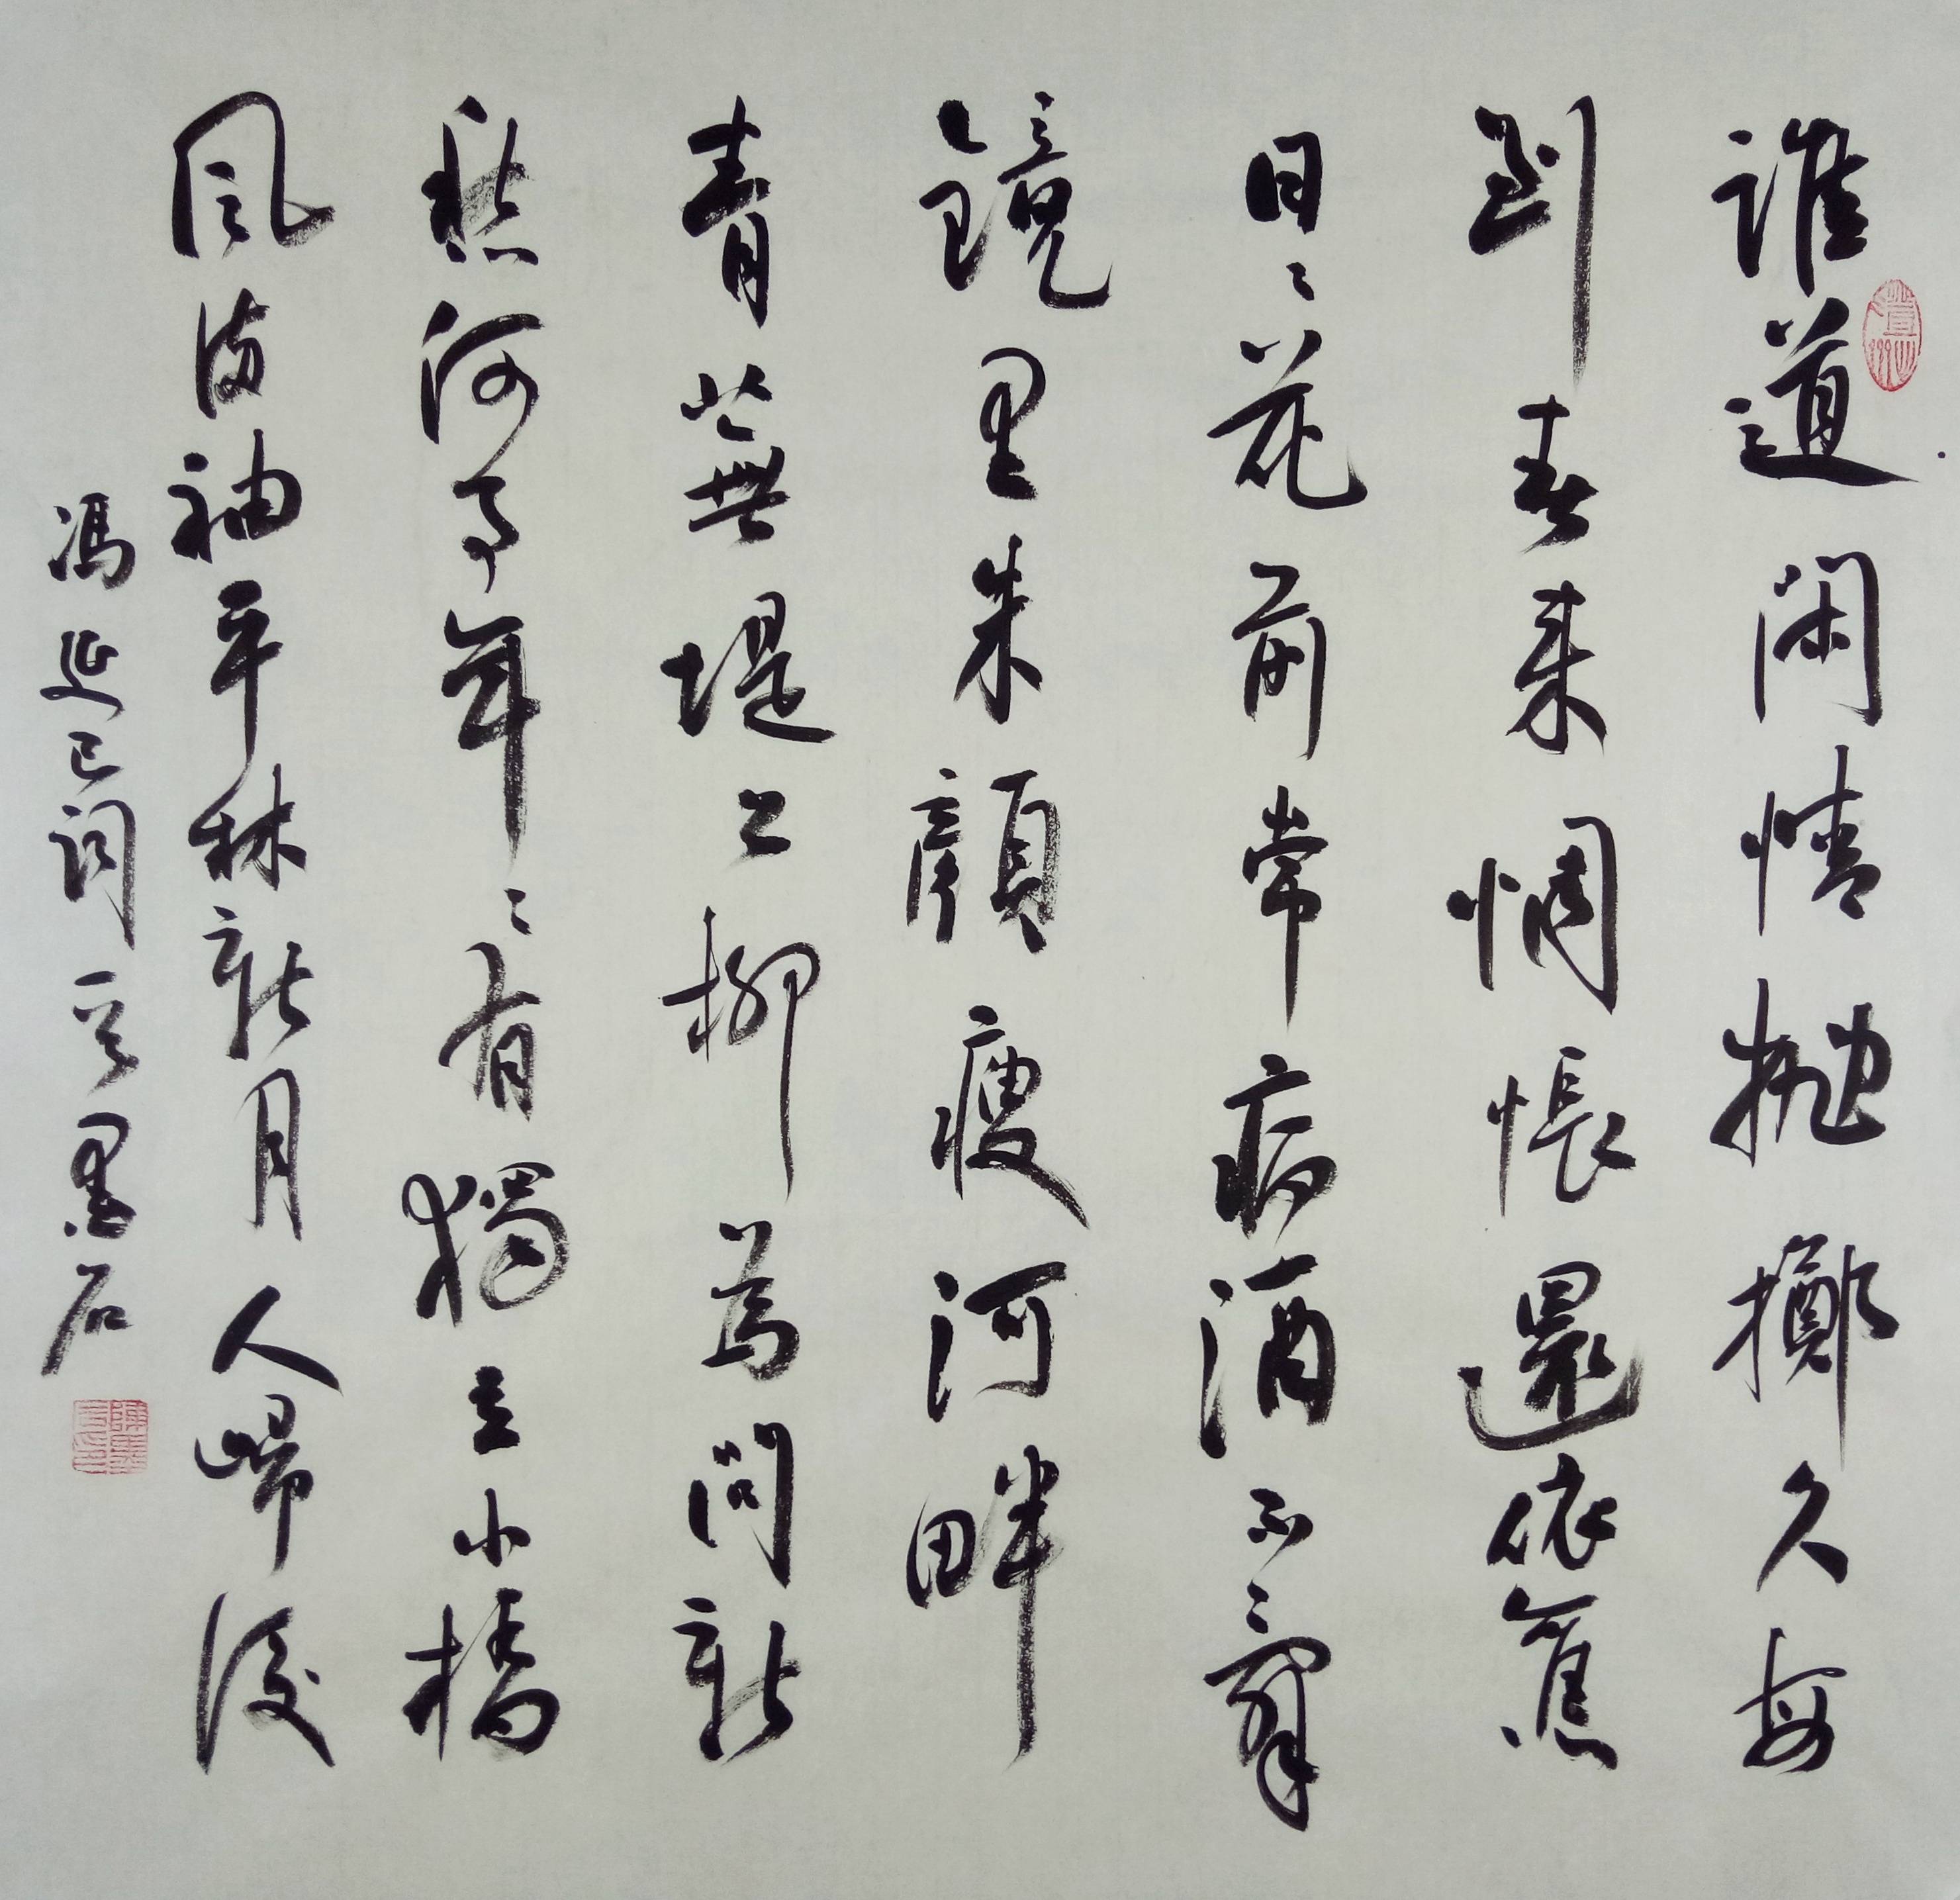 誰道閑情抛擲久每
到春来惆悵還依舊
日〻花前常病酒不辭
鏡里朱顏瘦河畔
青蕪堤上柳為問新
愁何事年〻有獨立小橋
風滿袖平林新月人歸後
馮延巳詞 墨石